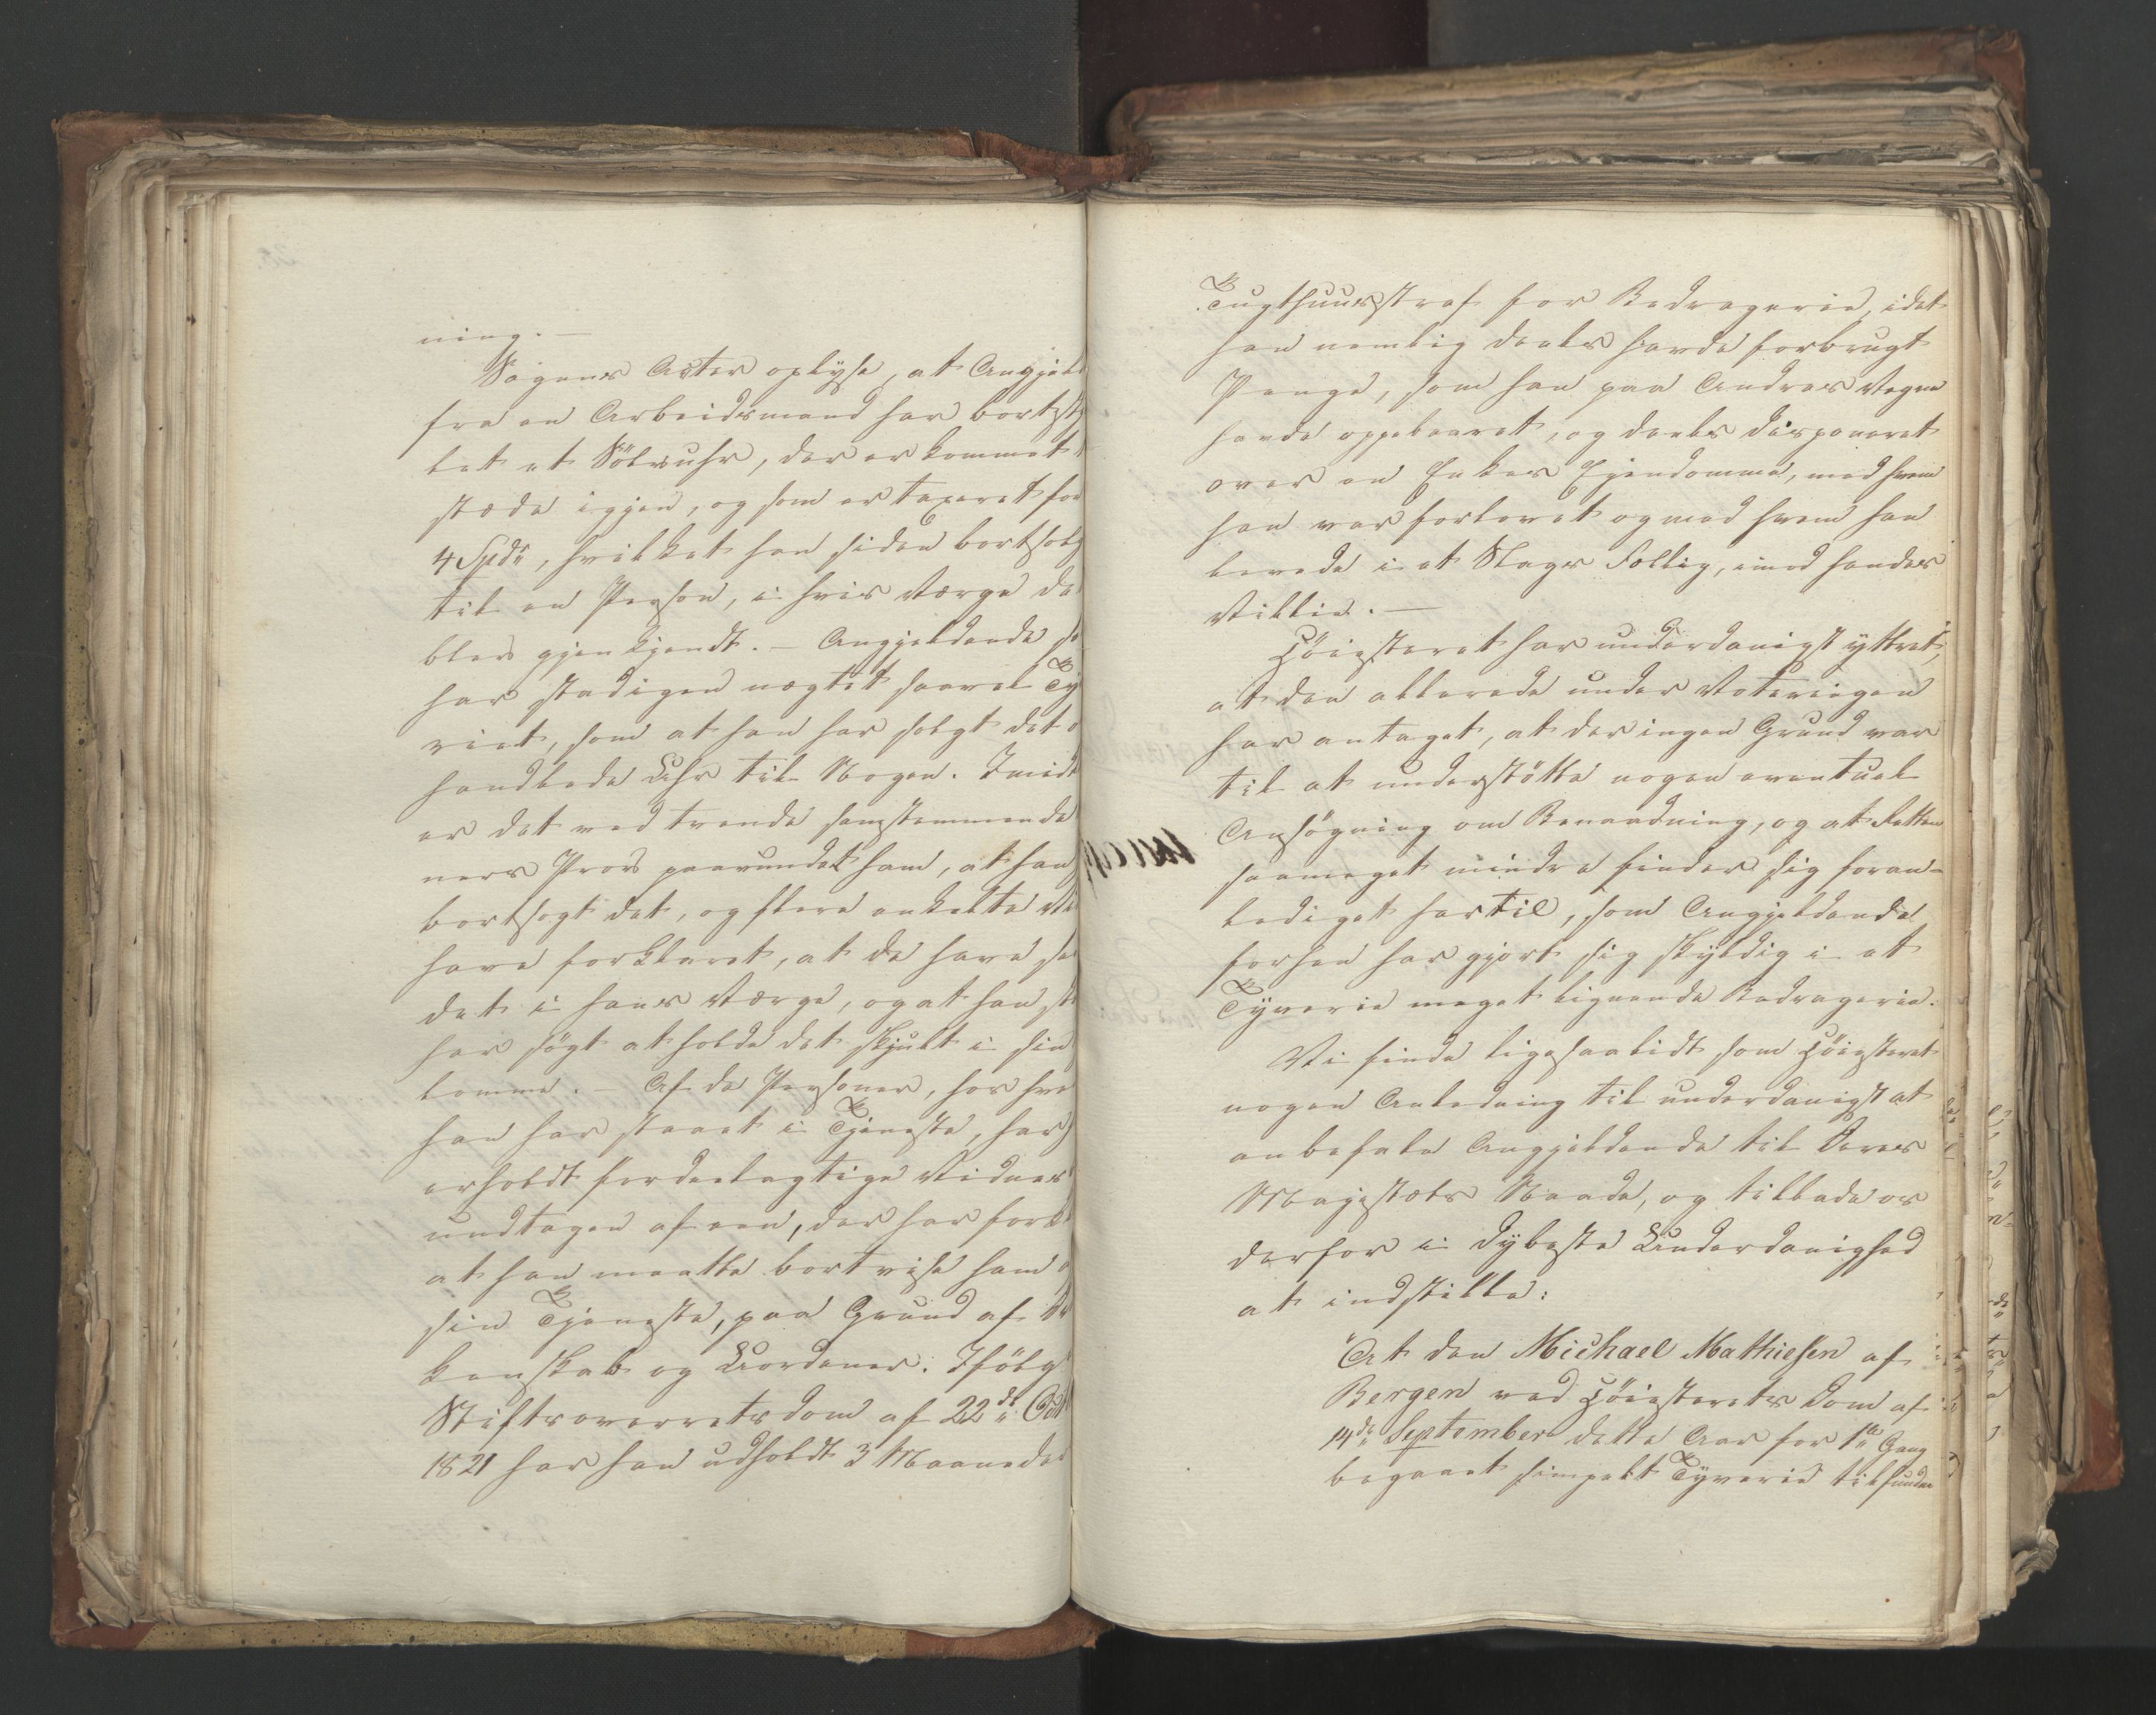 ning. —
Sagens Acter oplyse, at Angjeld
fra en Arbeidsmand har bortstj
let et Sölvuhr, der er kommet t
stæde igjen, og som er taxeret for
4 Spd, hvilket han siden bortsolg
til en Person, i hvis Værge de
blev gjenkjendt. — Angjeldende
har stadigen nægtet saavel Ty
riet, som at han har solgt det o
handlede Uhr til Nogen. Imidl
er det ved trende samstemmende
ners Prov paavundet ham, at han
bortsogt det, og flere enkelte Vi
have forklaret, at de have se
det i hans Værge, og at han
har søgt at holde det skjult i sin
lomme. — Af de Personer, hos hve
han har staaet i Tjeneste, har
erholdt fordeelagtige Vidnes
undtagen af een, der har forkl
at han maatte bortvise ham a
sin Tjeneste, paa Grund af
kenskab og Uordener. Ifölg
Stiftsoverretsdom af 22de Oct
1821 har han udholdt 3 Maaneders
Tugthuusstraf for Bedragerie, idet
han nemlig deels havde forbrugt
Penge, som han paa Andres Vegne
havde oppebaaret, og deels disponeret
over en Enkes Ejendomme, med hvem
han var forlovet og med hvem han
levede i et Slags Fællig, imod hendes
Villie. —
Höiesteret har underdanigst yttret,
at den allerede under Voteringen
har antaget, at der ingen Grund var
til at understötte nogen eventuel
Ansögning om Benaadning, og at Retten
saameget mindre finder sig foran-
lediget hertil, som Angjeldende
forhen har gjort sig skyldig i et
Tyverie meget lignende Bedragerie.
Vi finde ligesaalidt som Höiesteret
nogen Anledning til underdanigst at
anbefale Angjeldende til Deres
Majestæts Naade, og tillade os
derfor i dybeste Underdanighed
at indstille:
At den Michael Mathiesen af
Bergen ved Höiesterets Dom af
14de September dette Aar for 1ste Gang
begaaet simpelt Tyverie tilfunden